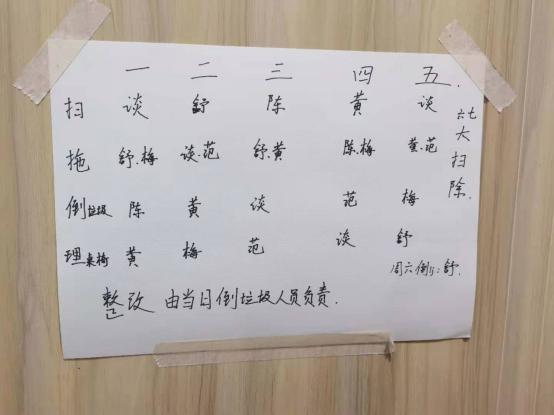 一 二 三 四 五.
扫 谈 舒 陈 黄 谈
拖 舒.梅 谈.范 舒.黄 陈.梅 黄.范
倒垃圾 陈 黄 谈 范 梅
理桌椅 黄 梅 范 谈 舒
六七大扫除.
周六倒垃:舒.
整改 由当日倒垃圾人员负责.